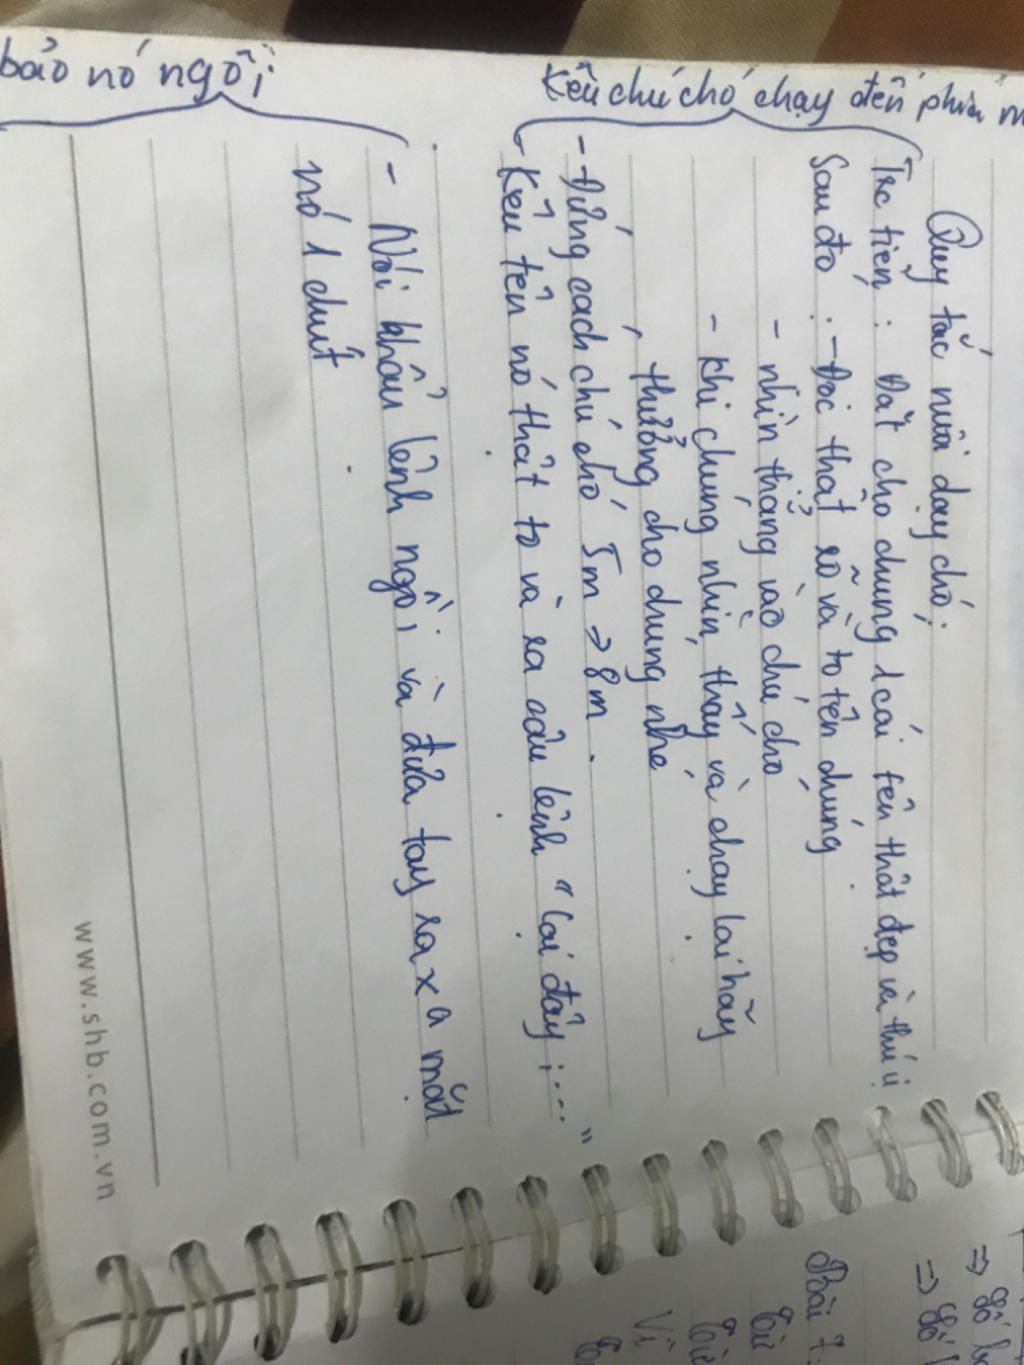 Quy tắc nuôi dạy chó:
Trc tiên: Đặt cho chúng 1 cái tên thật đẹp và thú ị
Sau đó: - Đọc thật rõ và to tên chúng
- nhìn thẳng vào chú chó
- Khi chúng nhìn thấy và chạy lại hãy
thưởng cho chúng nhé
Kêu chú chó chạy đến phía m
- Đứng cách chú chó 5m → 8m.
- Kêu tên nó thật to và ra câu lệnh "Lại đây;...."
bảo nó ngồi
- Nói khẩu lệnh ngồi và đưa tay ra xa mắt
nó 1 chút
www.shb.com.vn
Bài 7: